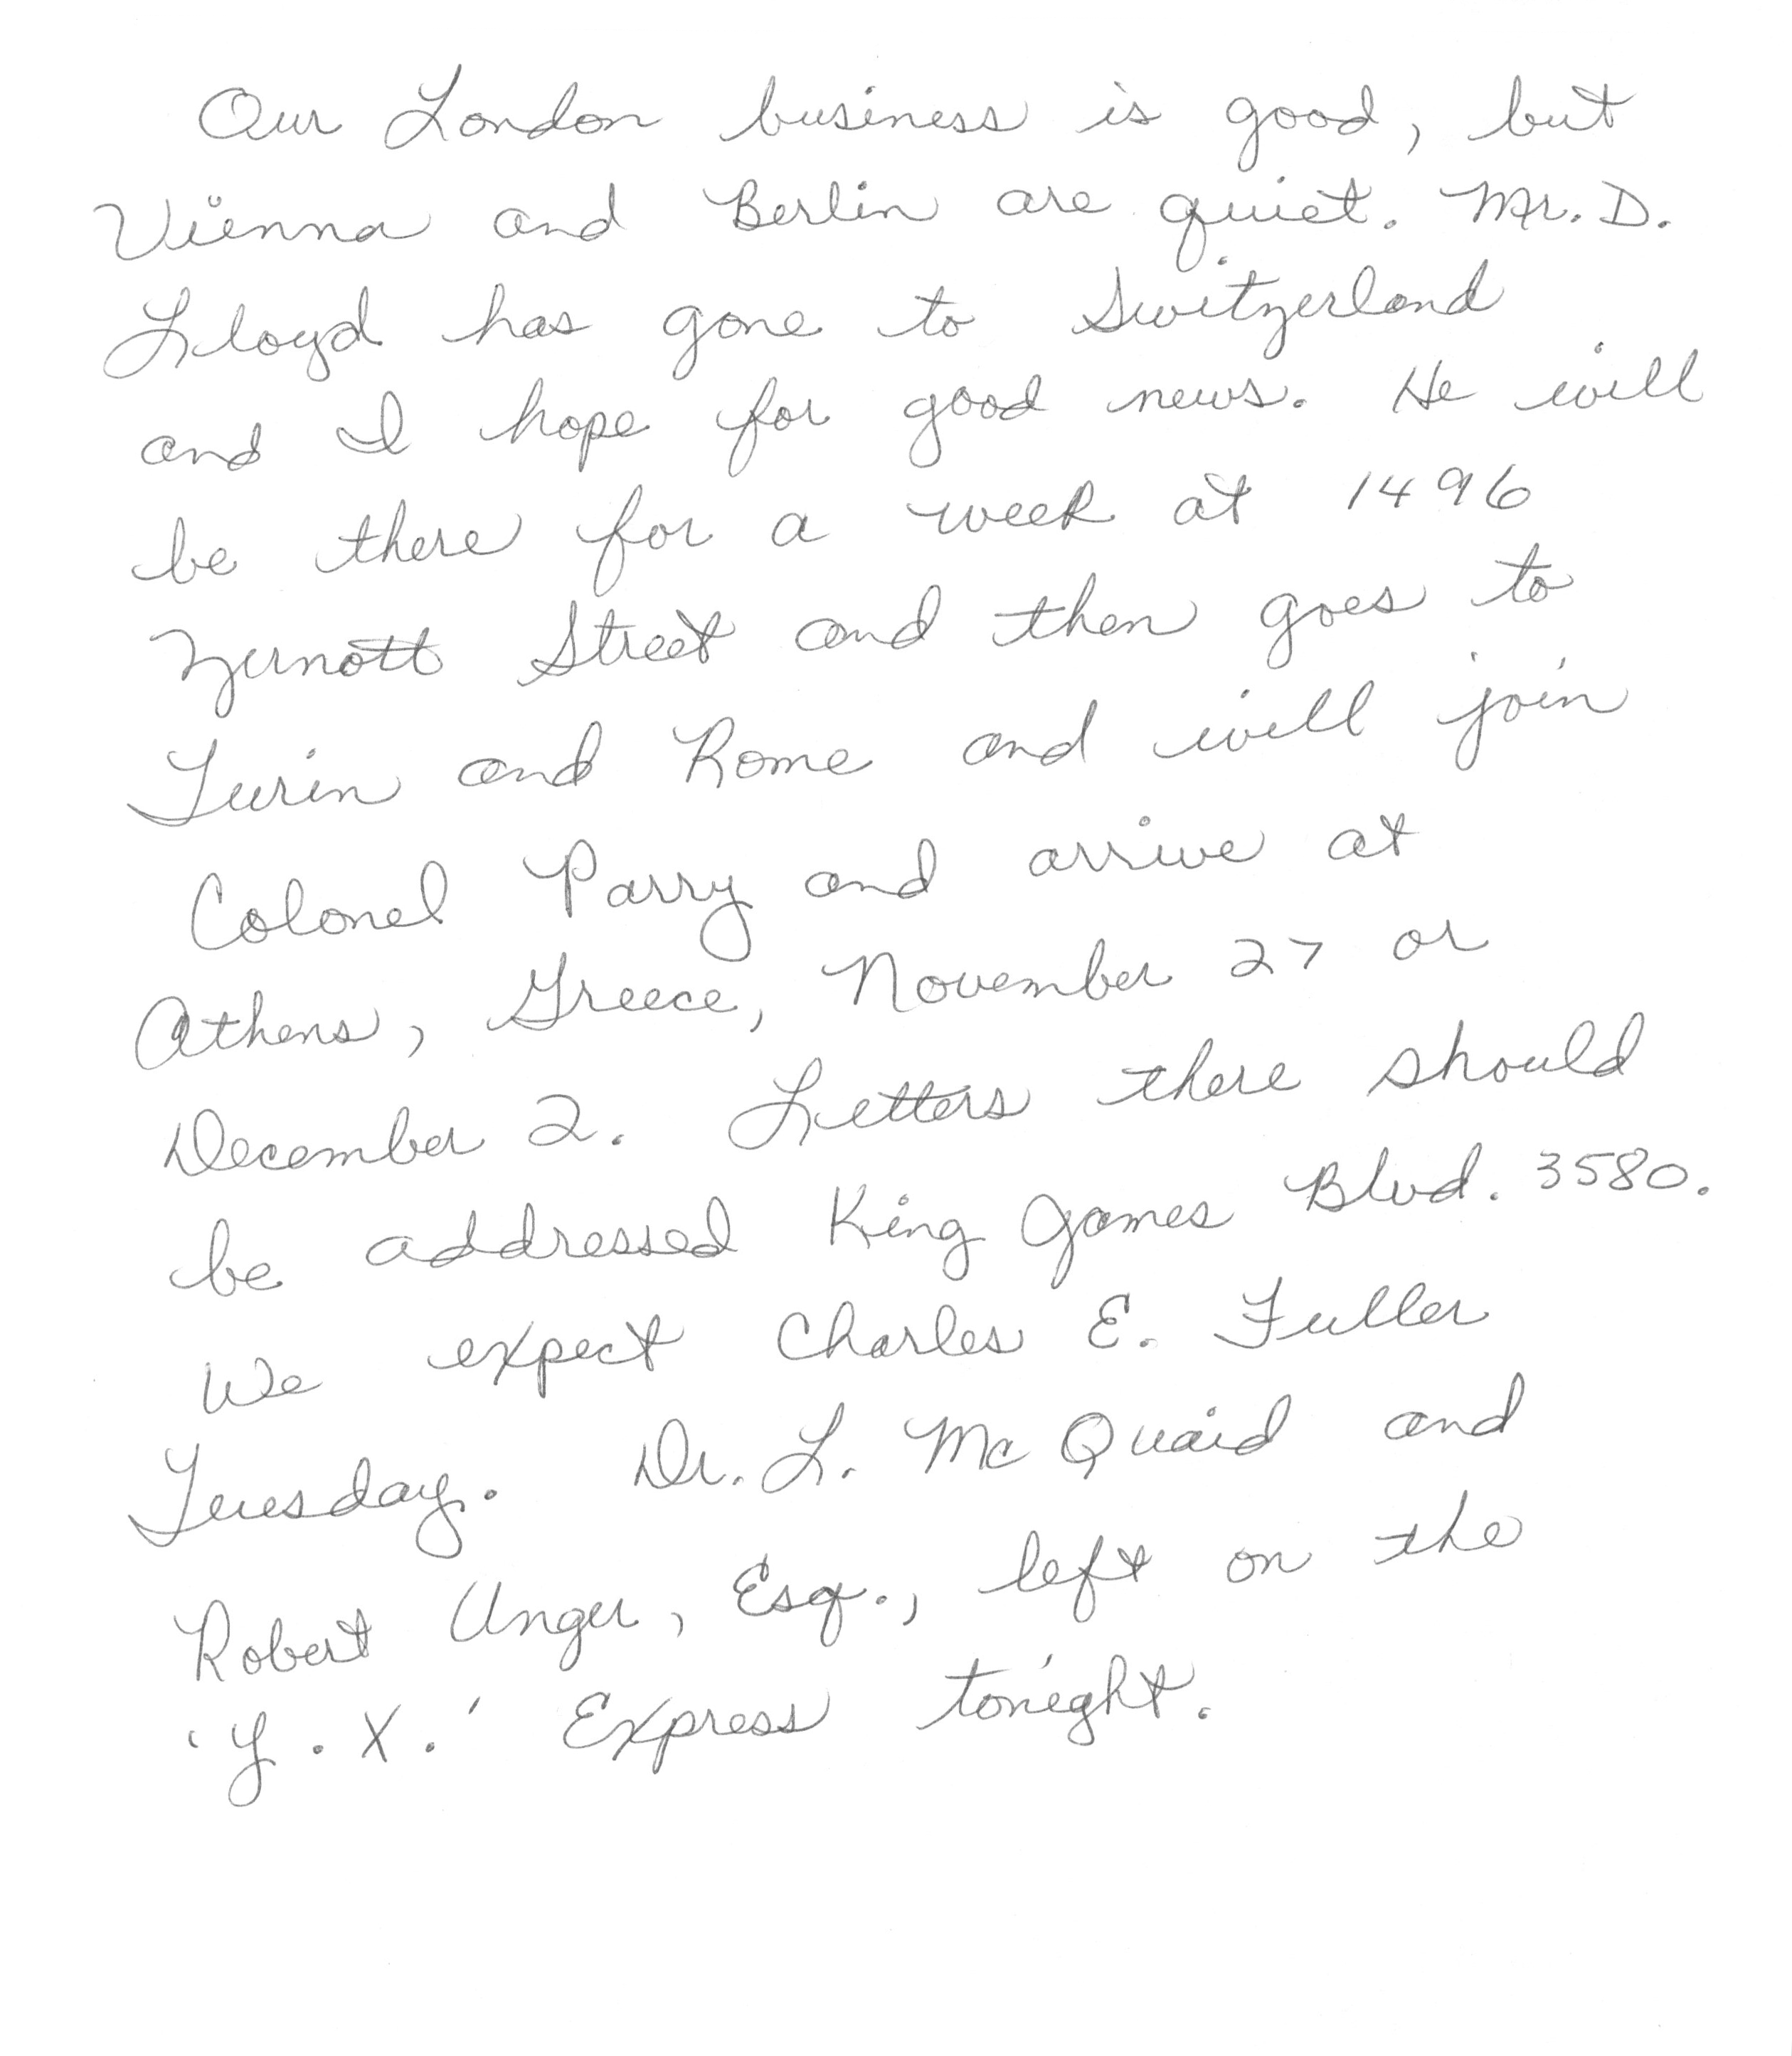 Our London business is good, but
Vienna and Berlin are quiet. Mr. D.
Lloyd has gone to Switzerland
and I hope for good news. He will
be there for a week at 1496
Zernott Street and then goes to
Turin and Rome and will join
Colonel Parry and arrive at
Athens, Greece, November 27 or
December 2. Letters there should
be addressed King James Blvd. 3580.
We expect Charles E. Fuller
Tuesday. Dr. L. McQuaid and
Robert Unger, Esq., left on the
'Y. X.' Express tonight.